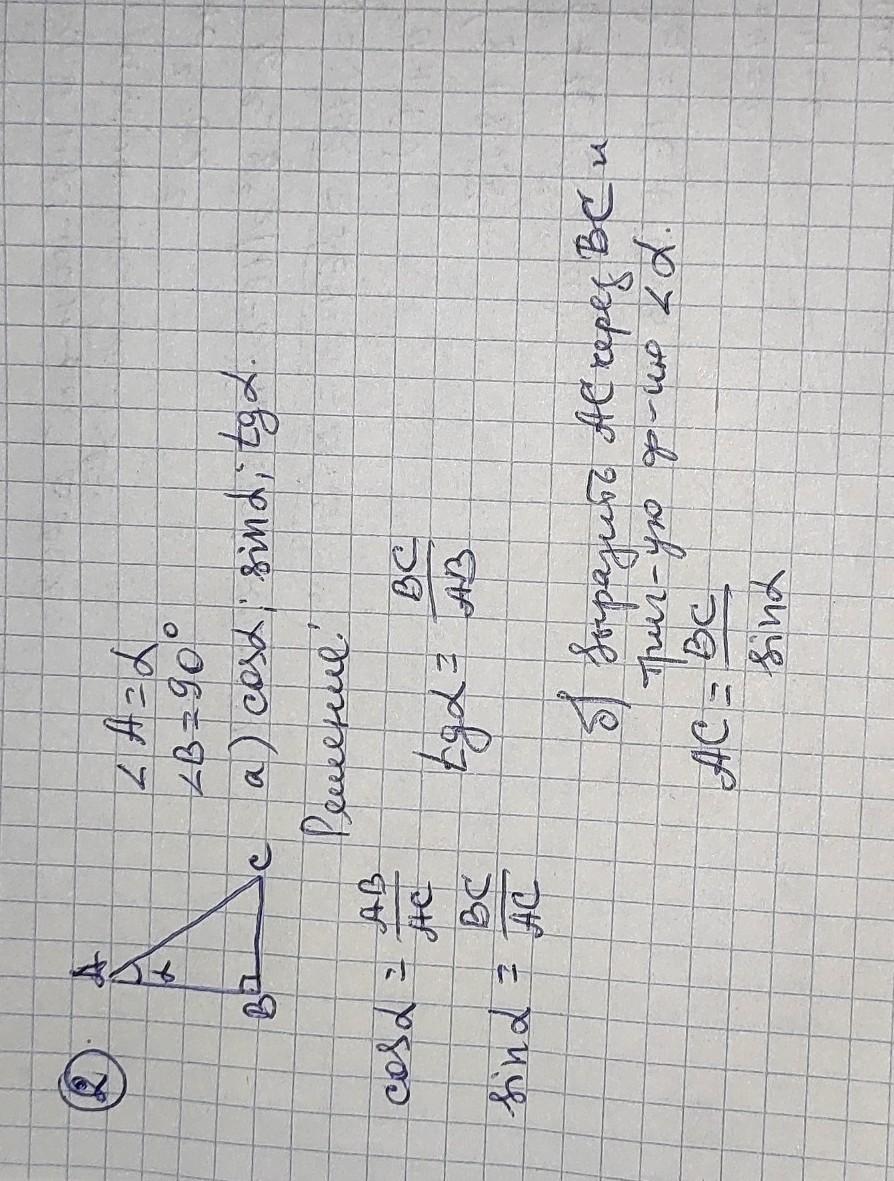 2.
A
α
B
C
∠A = α
∠B = 90°
а) cosα; sinα; tgα.
Решение:
cosα = AB/AC
tgα = BC/AB
sinα = BC/AC
б) Выразить AC через BC и
триг-ую ф-ию ∠α.
AC = BC/sinα